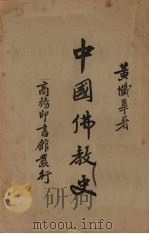 黃懺華著
中國佛教史
商務印書館發行
mtoou.info
mtoou.info